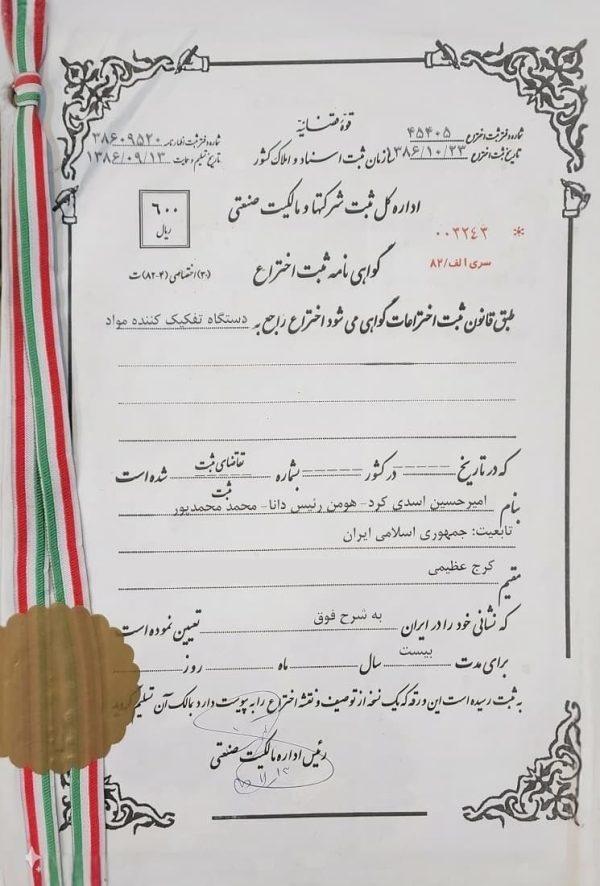 قوهٔ قضائیه
شماره دفتر ثبت اختراع ۴۵۴۰۵
شماره دفتر ثبت اظهارنامه ۳۸۶۰۹۵۲۰
تاریخ ثبت اختراع ۱۳۸۶/۱۰/۲۳
سازمان ثبت اسناد و املاک کشور
تاریخ تسلیم و حمایت ۱۳۸۶/۰۹/۱۳
اداره کل ثبت شرکتها و مالکیت صنعتی
۶۰۰
ریال
* ۰۰۳۲۴۳
سری الف/۸۲
گواهی نامه ثبت اختراع
(۳۰) اختصاصی (۴-۸۲) ت
طبق قانون ثبت اختراعات گواهی می شود اختراع راجع به دستگاه تفکیک کننده مواد
که در تاریخ ----- در کشور ----- بشماره ----- تقاضای ثبت شده است
ثبت
بنام امیرحسین اسدی کرد- هومن رئیس دانا- محمد محمدپور
تابعیت: جمهوری اسلامی ایران
مقیم کرج عظیمی
که نشانی خود را در ایران به شرح فوق تعیین نموده است
برای مدت بیست سال ماه روز
به ثبت رسیده است این ورقه که یک نسخه از توصیف و نقشه اختراع را به پیوست دارد بمالک آن تسلیم گردید
رئیس اداره مالکیت صنعتی